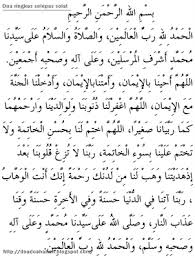 Doa ringkas selepas solat
بِسْمِ اللهِ الرَّحْمٰنِ الرَّحِيْمِ
الْحَمْدُ لِلّٰهِ رَبِّ الْعَالَمِيْنَ، وَالصَّلَاةُ وَالسَّلَامُ عَلَى سَيِّدِنَا
مُحَمَّدٍ أَشْرَفِ الْمُرْسَلِيْنَ، وَعَلَى آلِهِ وَصَحْبِهِ أَجْمَعِيْنَ.
اللّٰهُمَّ أَحْيِنَا بِالْإِيْمَانِ، وَأَمِتْنَا بِالْإِيْمَانِ، وَأَدْخِلْنَا الْجَنَّةَ
مَعَ الْإِيْمَانِ، اللّٰهُمَّ اغْفِرْ لَنَا ذُنُوْبَنَا وَلِوَالِدِيْنَا وَارْحَمْهُمَا
كَمَا رَبَّيَانَا صِغَارًا، اللّٰهُمَّ اخْتِمْ لَنَا بِحُسْنِ الْخَاتِمَةِ وَلَا
تَخْتِمْ عَلَيْنَا بِسُوْءِ الْخَاتِمَةِ، رَبَّنَا لَا تُزِغْ قُلُوْبَنَا بَعْدَ
إِذْ هَدَيْتَنَا وَهَبْ لَنَا مِنْ لَدُنْكَ رَحْمَةً إِنَّكَ أَنْتَ الْوَهَّابُ،
رَبَّنَا آتِنَا فِي الدُّنْيَا حَسَنَةً وَفِي الْآخِرَةِ حَسَنَةً وَقِنَا
عَذَابَ النَّارِ، وَصَلَّى اللهُ عَلَى سَيِّدِنَا مُحَمَّدٍ وَعَلَى آلِهِ
وَصَحْبِهِ وَسَلَّمَ، وَالْحَمْدُ لِلّٰهِ رَبِّ الْعَالَمِيْنَ.